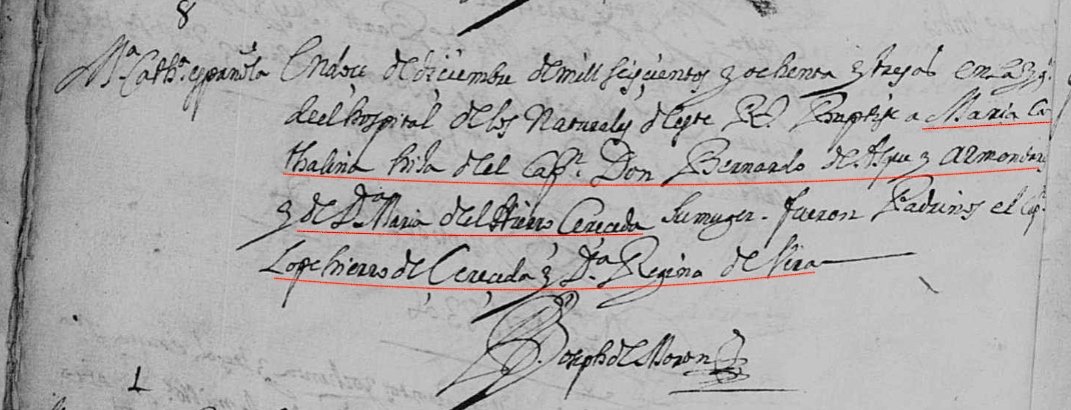 8
M.ª Cathª. española
En doce de diciembre de mill seiscientos y ochenta y tres as en la Yg.ª
de el hospital de los Naturales de este R.l Baptise a Maria Ca
thalina hija del Capn. Don Bernardo de Aspe y Armendar
y de Dª. Maria del Hierro Cereceda su muger. fueron Padrinos el Capn.
Lope hierro de Cereceda y Dª. Regina de Vera
Joseph de Moron
1